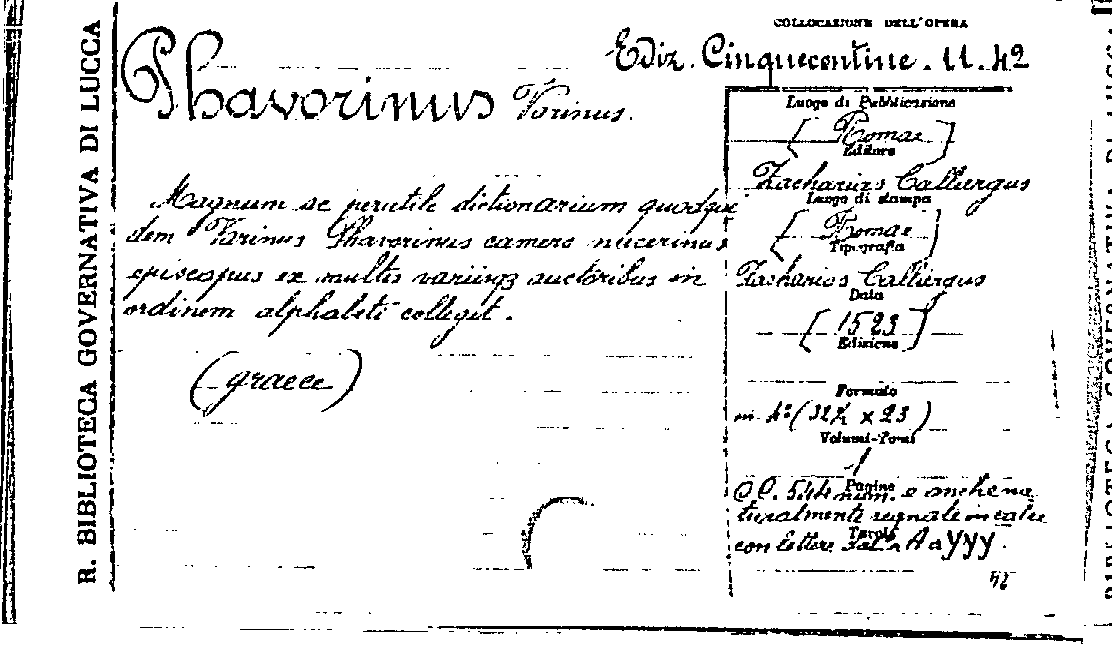 R. BIBLIOTECA GOVERNATIVA DI LUCCA
COLLOCAZIONE DELL'OPERA
Ediz. Cinquecentine. 11. 42
Phavorinus Varinus.
Magnum ac perutile dictionarium quodqui
dem Varinus Phavorinus camers nucerinus
episcopus ex multis variisq auctoribus in
ordinem alphabeti collegit.
(graece)
Luogo di Pubblicazione
[Romae]
Editore
Zacharias Calliergus
Luogo di stampa
[Romae]
Tipografia
Zacharias Calliergus
Data
[1523]
Edizione
Formato
in 4º (32½ x 23)
Volumi-Tomi
1
Pagine
CC. 544 num. e anche na
turalmente segnate in calce
Tavole
con lettere A a yyy.